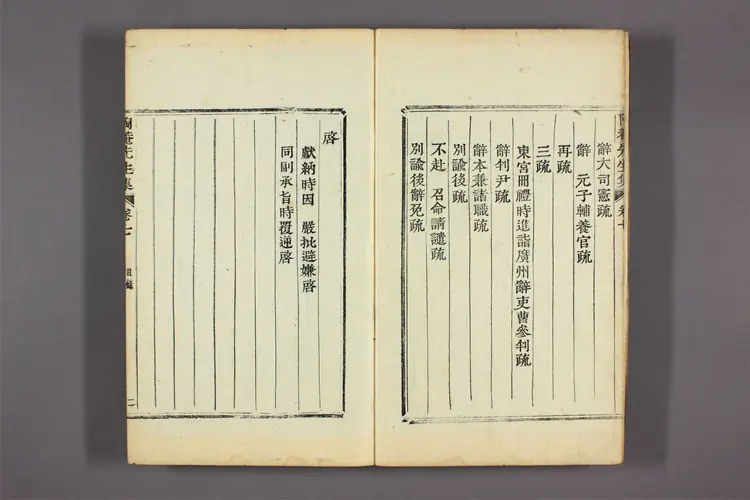 辭大司憲疏
辭 元子輔養官疏
再疏
三疏
東宮冊禮時進詣廣州辭吏曹參判疏
辭判尹疏
辭本兼諸職疏
別諭後疏
不赴 召命請譴疏
別諭後辭免疏
啓
獻納時因 嚴批避嫌啓
同副承旨時覆逆啓
陶菴先生集 卷七 目錄 二